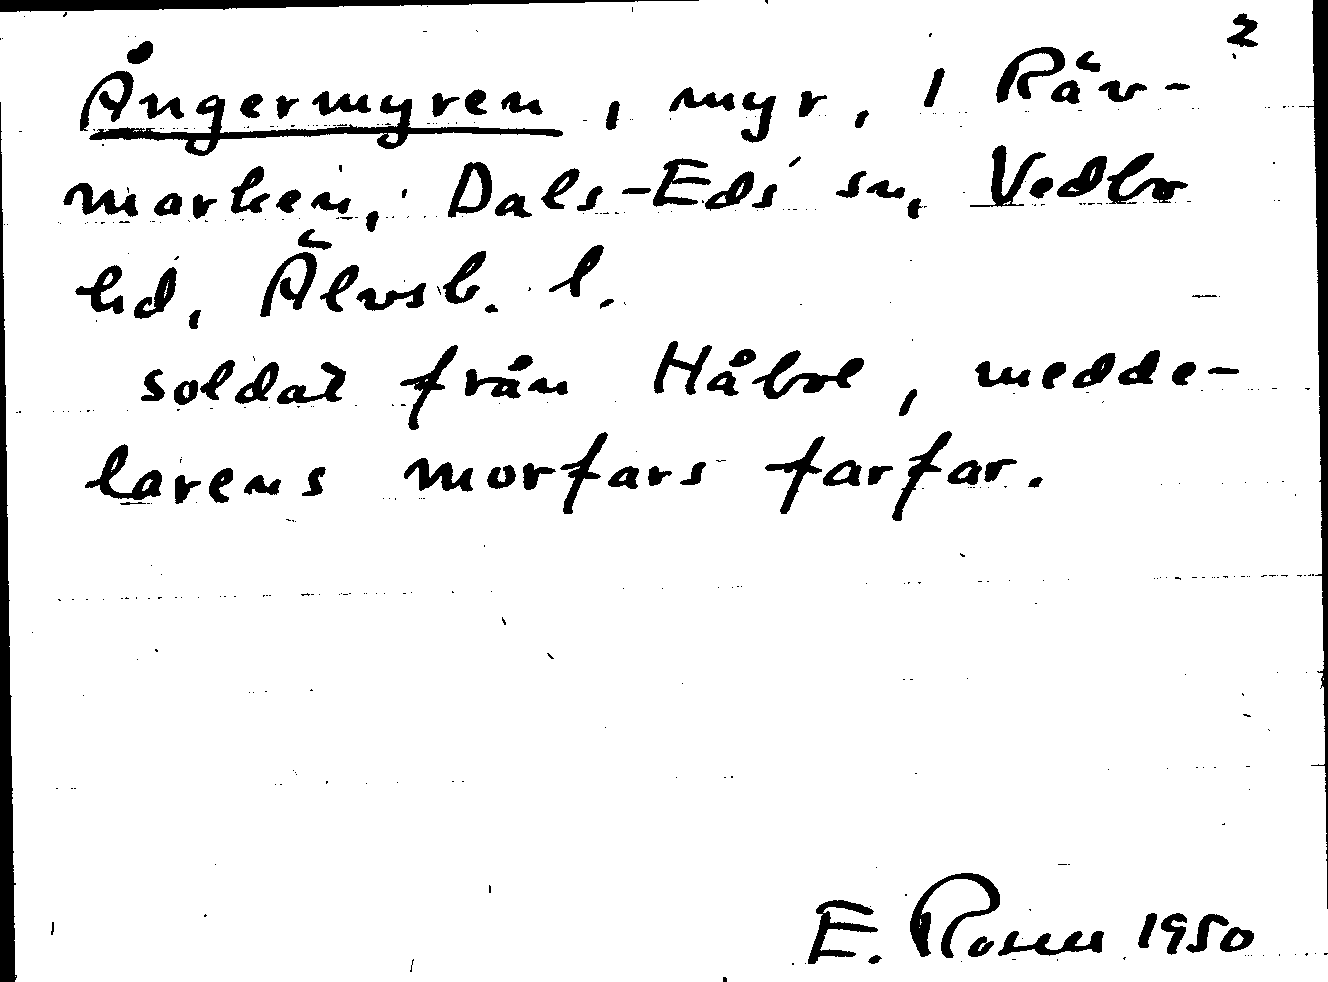 2
Ångermyren, myr, 1 Räv-
marken, Dals-Eds sn, Vedbo
hd, Älvsb. l.
soldat från Håbol, medde-
larens morfars farfar.
E. Rosen 1950